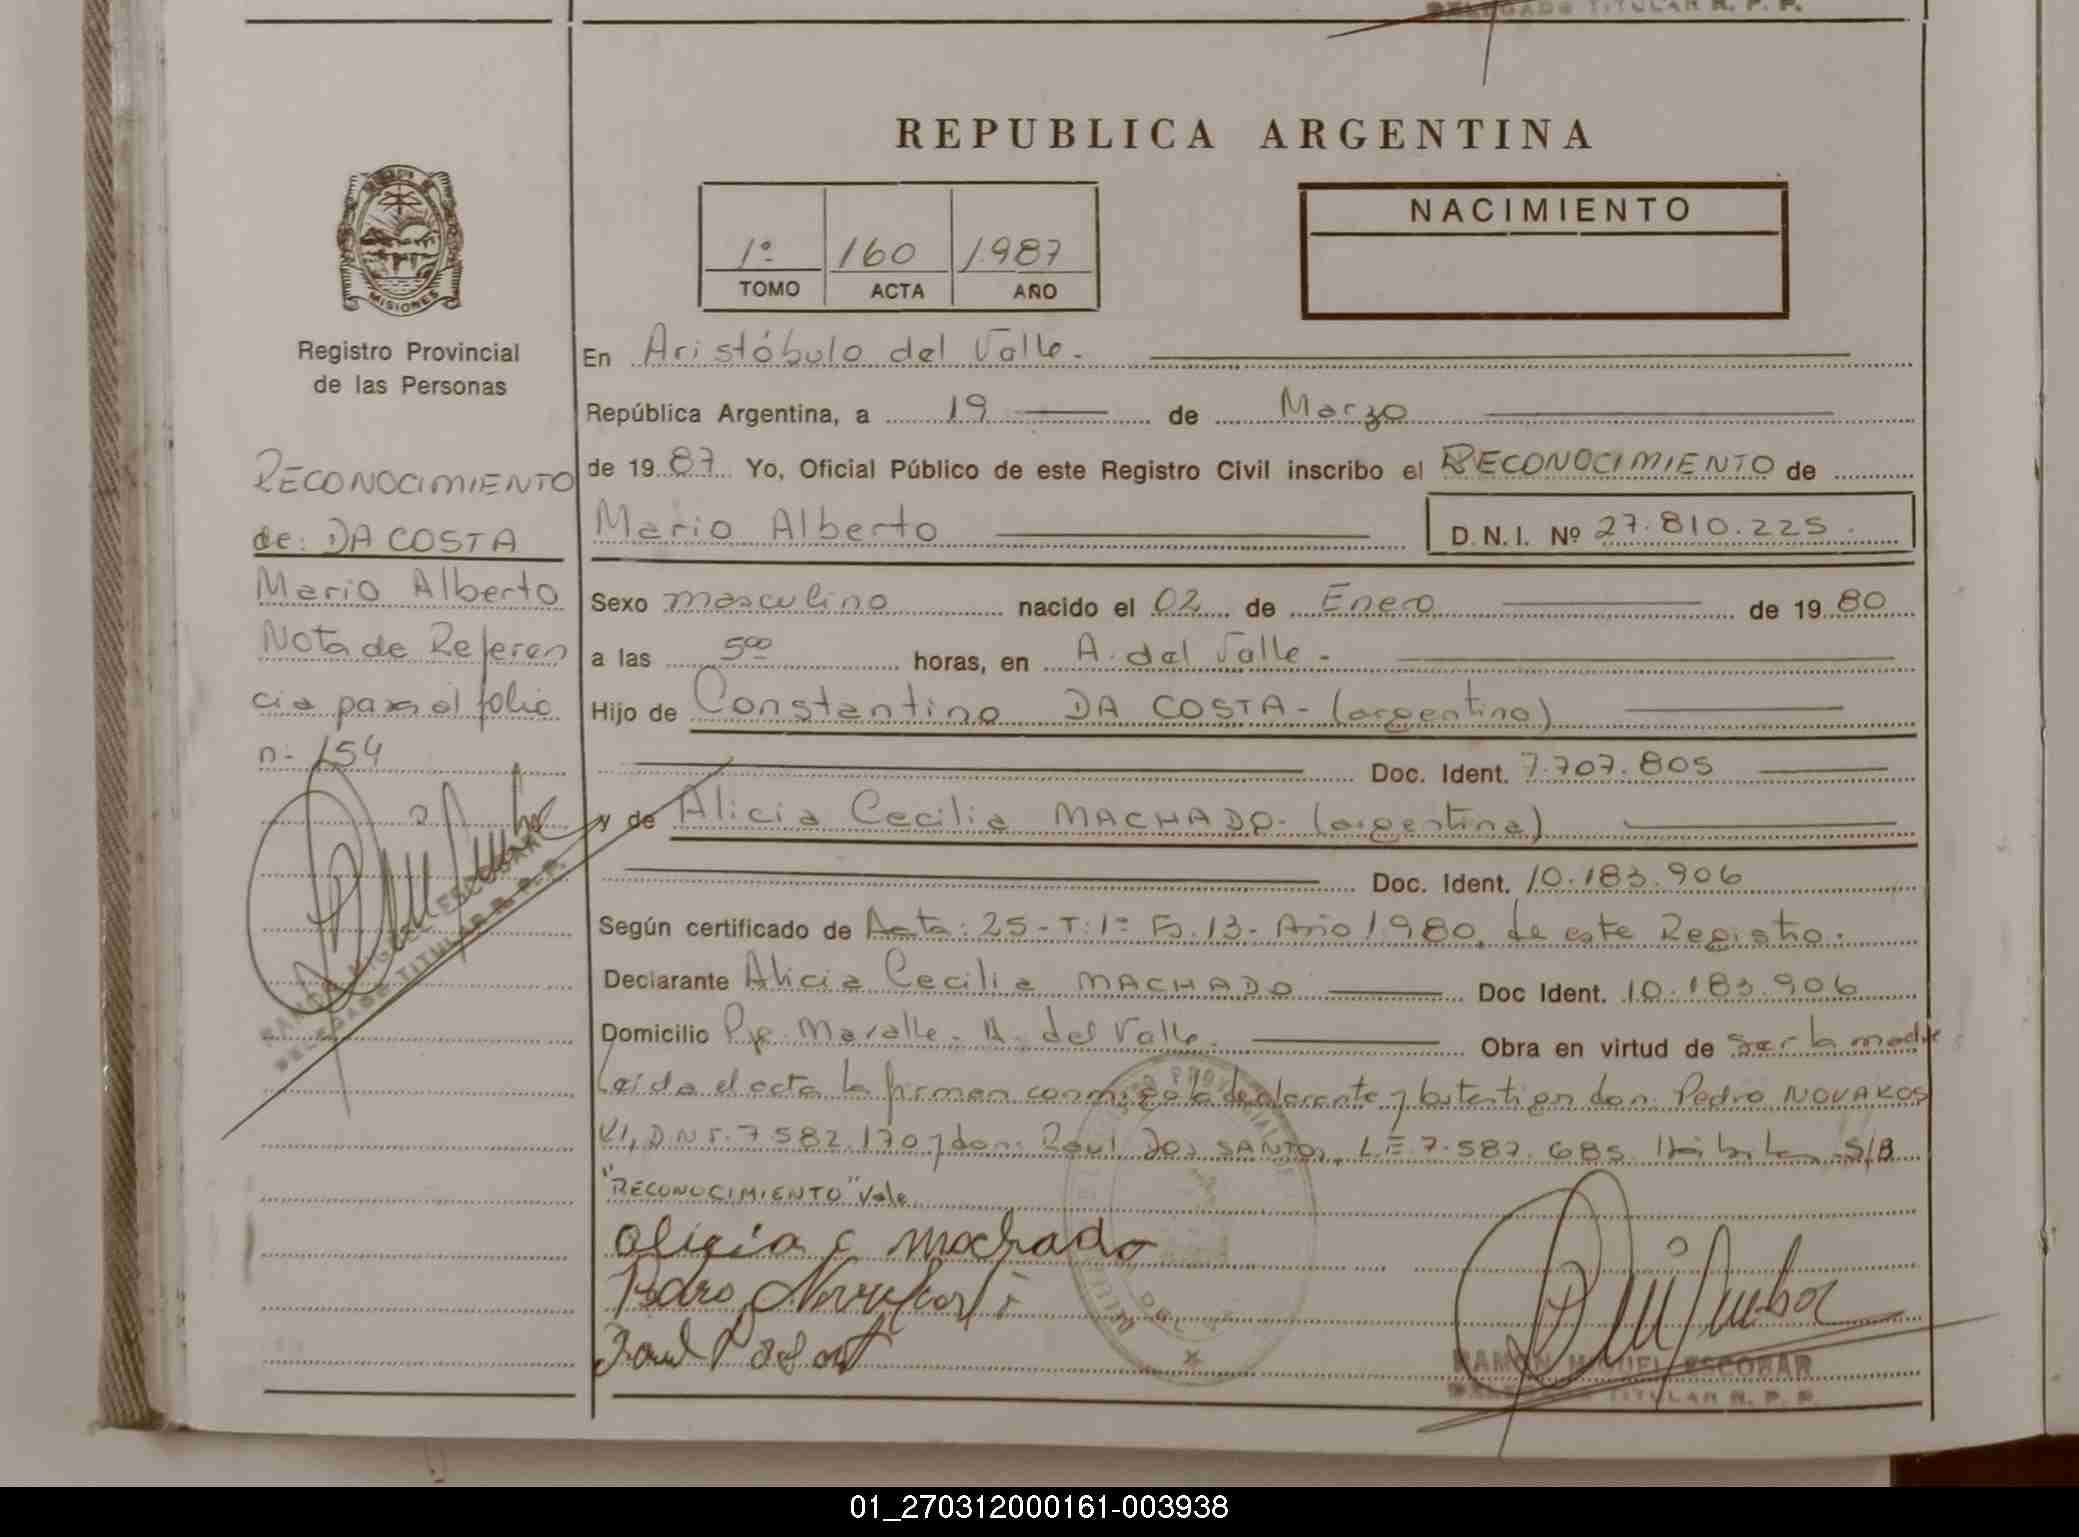 DELEGADO TITULAR R. P. P.
REPUBLICA ARGENTINA
NACIMIENTO
1º 160 1987
TOMO ACTA AÑO
MISIONES
Registro Provincial
de las Personas
RECONOCIMIENTO
de: DA COSTA
Mario Alberto
Nota de Referen
cia para el folio
n- 154
RAMON MIGUEL ESCOBAR
DELEGADO TITULAR R. P. P.
En Aristóbulo del Valle.
República Argentina, a 19 de Marzo
de 1987 Yo, Oficial Público de este Registro Civil inscribo el RECONOCIMIENTO de
Mario Alberto D.N.I. Nº 27.810.225.
Sexo masculino nacido el 02 de Enero de 1980
a las 5 00 horas, en A. del Valle -
Hijo de Constantino DA COSTA - (argentino)
Doc. Ident. 7.707.805
y de Alicia Cecilia MACHADO - (argentina)
Doc. Ident. 10.183.906
Según certificado de Acta: 25 - T: 1º Fº 13 - Año 1980, de este Registro.
Declarante Alicia Cecilia MACHADO Doc Ident. 10.183.906
Domicilio Pje. A. del Valle. Obra en virtud de ser la madre
Leída el acta la firman conmigo la declarante y los testigos don: Pedro NOVAKOS
KI, D.N.I. 7.582.170 y don: Raul DOS SANTOS, L.E. 7.587.685. S/B
"RECONOCIMIENTO" Vale.
Alicia C Machado
Pedro
RAMON MIGUEL ESCOBAR
DELEGADO TITULAR R. P. P.
01_270312000161-003938